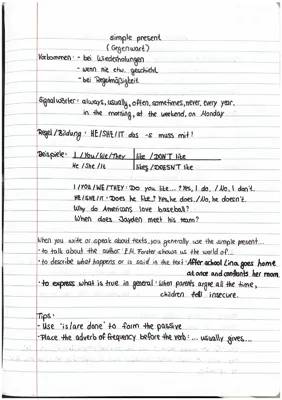 simple present
(Gegenwart)
Vorkommen: - bei Wiederholungen
- wenn nie etw. geschieht
- bei Regelmäßigkeit
Signalwörter: always, usually, often, sometimes, never, every year,
in the morning, at the weekend, on Monday
Regel/Bildung: HE/SHE/IT das -s muss mit!
Beispiele: I/You/We/They like /DON'T like
He/She/It likes /DOESN'T like
I/YOU/WE/THEY: Do you like...? Yes, I do. /No, I don't.
HE/SHE/IT: Does he like..? Yes, he does. /No, he doesn't.
Why do Americans love baseball?
When does Jayden meet his team?
When you write or speak about texts, you generally use the simple present...
- to talk about the author: E.M. Forster shows us the world of...
- to describe what happens or is said in the text: After school Lina goes home
at once and confronts her mom.
- to express what is true in general: When parents argue all the time,
children feel insecure.
Tips:
- Use "is/are done" to form the passive
- Place the adverb of frequency before the verb: ... usually gives...